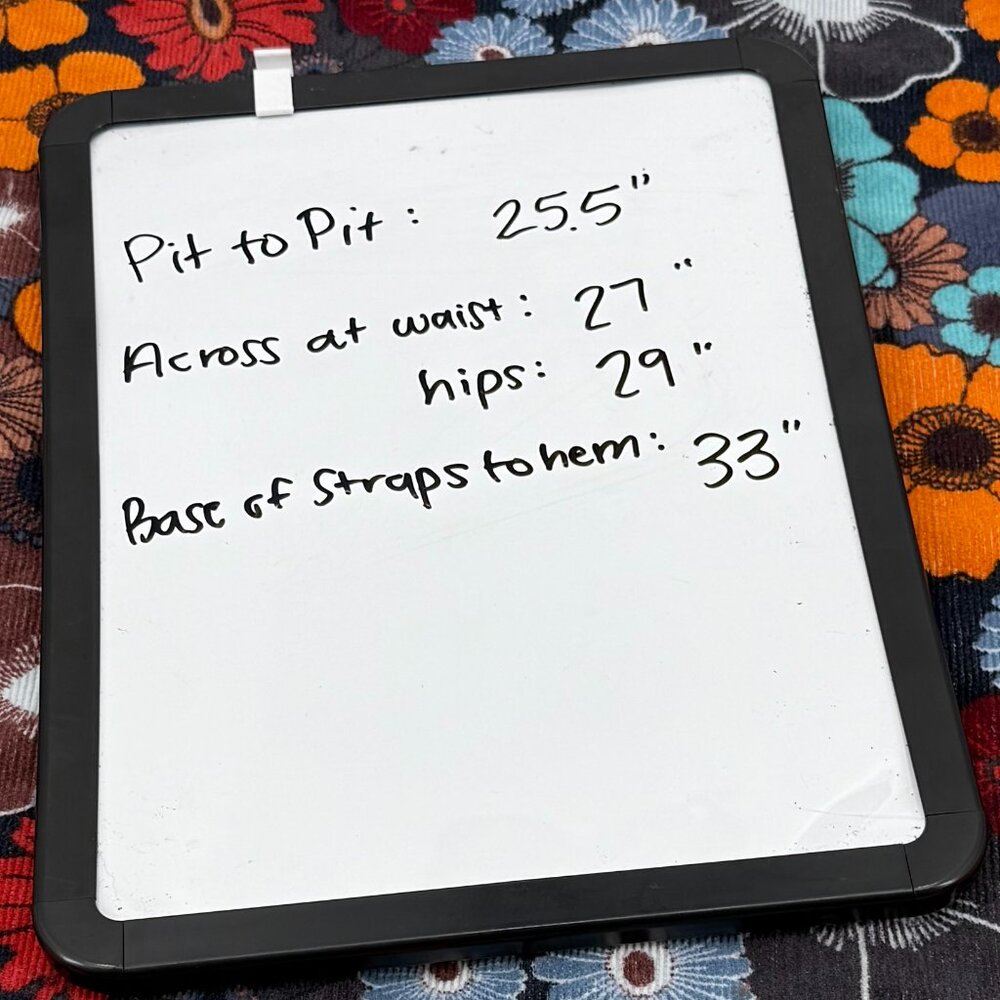 Pit to Pit: 25.5"
Across at waist: 27"
hips: 29"
Base of Straps to hem: 33"